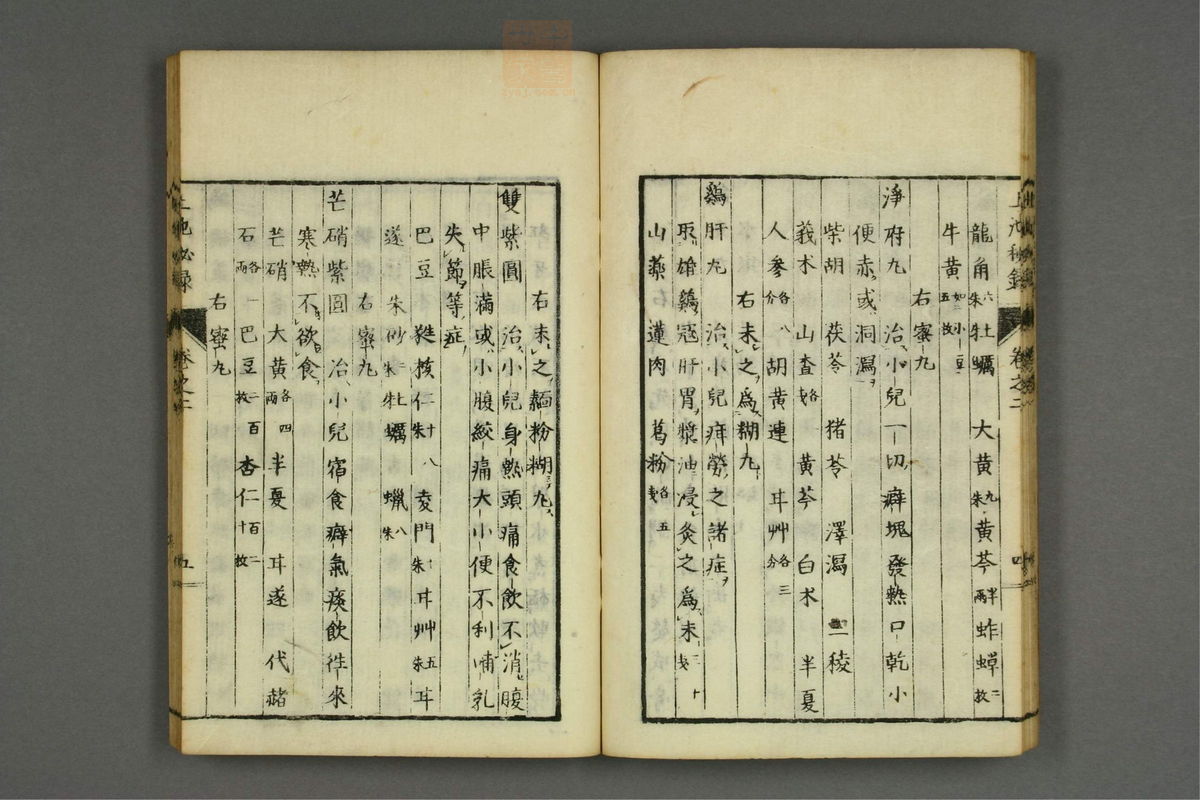 龍角六朱牡蠣 大黄九朱黄芩半兩蚱蟬二枚
牛黄如小豆五枚
右蜜九
淨府九 治小兒一切癖塊發熱口乾小
便赤或洞瀉
柴胡 茯苓 猪苓 澤瀉 三稜
莪朮 山査各 黄芩 白朮 半夏
人參各八分 胡黄連 耳艸各三分
右末之爲糊九
鷄肝九 治小兒疳勞之諸症
取雄鷄冠肝胃漿油浸炙之爲末三十
山藥 蓮肉 葛粉各五
上池秘録 卷之二 四
右末之麺粉糊九
雙紫圓 治小兒身熱頭痛食飲不消腹
中脹滿或小腹絞痛大小便不利哺乳
失節等症
巴豆 蕤核仁十八朱 麥門 朱 耳艸五朱 耳
遂 朱砂二朱 牡蠣 蝋八朱
右蜜九
芒硝紫圓 治小兒宿食癖氣痰飲徃來
寒熱不欲食
芒硝 大黄各四兩 半夏 耳遂 代赭
石各一兩 巴豆二百枚 杏仁百二十枚
右蜜九
上池秘録 卷之二 五